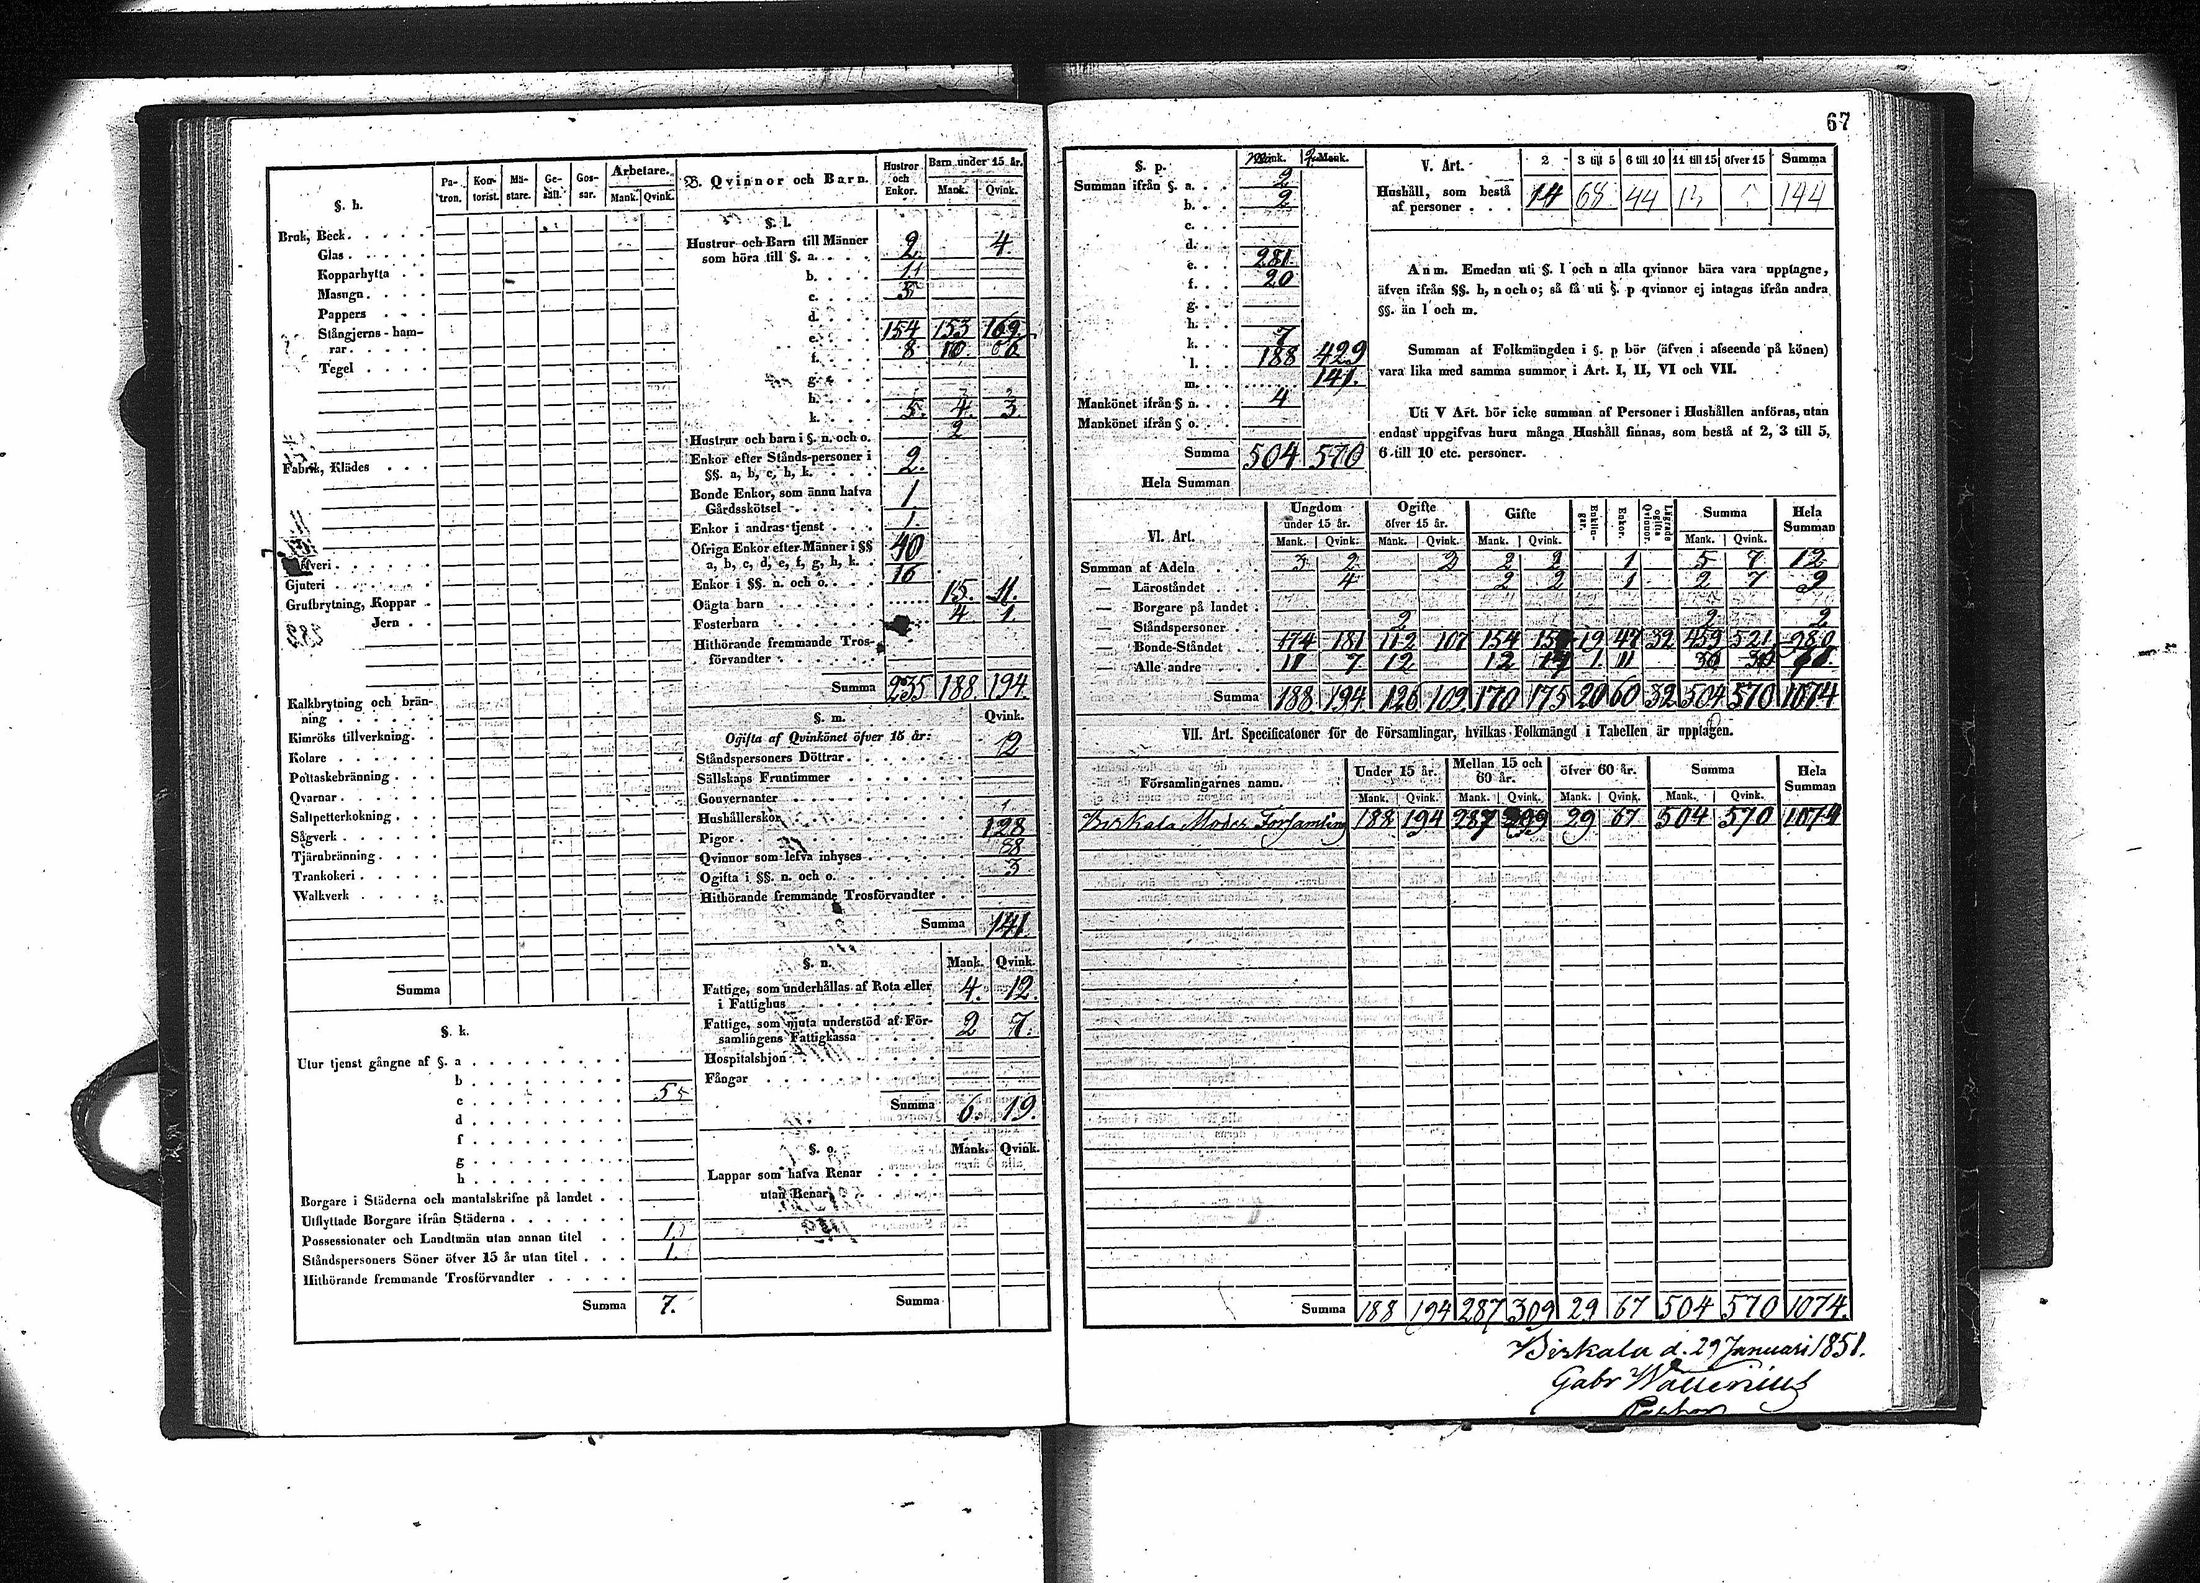 67
§. h.
Pa-
tron.
Kon-
torist.
Mä-
stare.
Ge-
säll.
Gos-
sar.
Arbetare.
Mank. Qvink.
Bruk, Beck . . . . .
Glas . . . . .
Kopparhytta . . .
Masugn . . . .
Pappers . . .
Stångjerns-ham-
rar . . . . .
Tegel . . . .
Fabrik, Klädes . . .
Gjuteri . . . . . .
Grufbrytning, Koppar .
Jern . .
Kalkbrytning och brän-
ning . . . . . .
Kimröks tillverkning . .
Kolare . . . . . .
Pottaskebränning . . .
Qvarnar . . . . .
Saltpetterkokning . . .
Sågverk . . . . .
Tjärubränning . . . .
Trankokeri . . . . .
Walkverk . . . . .
Summa
§. k.
Utur tjenst gångne af §. a . . . . . . . .
b . . . . . . . .
c . . . . . . . . 5
d . . . . . . . .
f . . . . . . . .
g . . . . . . . .
h . . . . . . . .
Borgare i Städerna och mantalskrifne på landet . .
Utflyttade Borgare ifrån Städerna . . . . . . .
Possessionater och Landtmän utan annan titel . . 1.
Ståndspersoners Söner öfver 15 år utan titel . . . 1.
Hithörande fremmande Trosförvandter . . . . .
Summa 7.
B. Qvinnor och Barn.
Hustror
och
Enkor.
Barn under 15 år.
Mank. Qvink.
§. l.
Hustrur och Barn till Männer
som höra till §. a. . . . 2 4.
b. . . .
c. . . .
d. . . .
e. . . . 154 153 169
f. . . . 8 10
g. . . .
h. . . .
k. . . . 5. 4. 3
Hustrur och barn i §. n. och o. 2
Enkor efter Stånds-personer i
§§. a, b, c, h, k. . . . . 2.
Bonde Enkor, som ännu hafva
Gårdsskötsel . . . . . 1
Enkor i andras tjenst . . . 1.
Öfriga Enkor efter Männer i §§
a, b, c, d, e, f, g, h, k. . 40
Enkor i §§. n. och o. . . . 16
Oägta barn . . . . . . 15. 11.
Fosterbarn . . . . . . 4 1.
Hithörande fremmande Tros-
förvandter . . . . . .
Summa 235 188 194.
§. m. Qvink.
Ogifta af Qvinkönet öfver 15 år:
Ståndspersoners Döttrar . . . . . . 2
Sällskaps Fruntimmer . . . . . .
Gouvernanter . . . . . . . .
Hushållerskor . . . . . . . .
Pigor . . . . . . . . . . 128
Qvinnor som lefva inhyses . . . . . .
Ogifta i §§. n. och o. . . . . . . 3
Hithörande fremmande Trosförvandter . . .
Summa 141
§. n. Mank. Qvink.
Fattige, som underhållas af Rota eller
i Fattighus . . . . . . . 4. 12.
Fattige, som njuta understöd af För-
samlingens Fattigkassa . . . . 2 7.
Hospitalshjon . . . . . . . .
Fångar . . . . . . . . . .
Summa 6. 19.
§. o. Mank. Qvink.
Lappar som hafva Renar . . . .
utan Renar . . . . .
Summa
§. p. Mank.
Summan ifrån §. a. . . 2
b. . . 2
c. . .
d. . .
e. . . 281.
f. . . 20
g. . .
h. . .
k. . . 7
l. . . 188 429
m. . . 141.
Mankönet ifrån § n. . . 4
Mankönet ifrån § o. . .
Summa 504 570
Hela Summan
V. Art. 2 3 till 5 6 till 10 11 till 15 öfver 15 Summa
Hushåll, som bestå
af personer . . . 14 68 44 144
Anm. Emedan uti §. l och n alla qvinnor böra vara upptagne,
äfven ifrån §§. h, n och o; så få uti §. p qvinnor ej intagas ifrån andra
§§. än l och m.
Summan af Folkmängden i §. p bör (äfven i afseende på könen)
vara lika med samma summor i Art. I, II, VI och VII.
Uti V Art. bör icke summan af Personer i Hushållen anföras, utan
endast uppgifvas huru många Hushåll finnas, som bestå af 2, 3 till 5,
6 till 10 etc. personer.
VI. Art.
Ungdom
under 15 år.
Ogifte
öfver 15 år.
Gifte
Enklin-
gar.
Enkor.
Lägrade
ogifta
Qvinnor.
Summa
Hela
Summan
Mank. Qvink. Mank. Qvink. Mank. Qvink. Mank. Qvink.
Summan af Adeln . . . 3 2 2 2 2 1 5 7 12
— Läroståndet . . 4 2 2 1 2 7 9
— Borgare på landet .
— Ståndspersoner . . 2 2 2
— Bonde-Ståndet . . 174 181 112 107 154 19 47 32 459 521 980
— Alle andre . . . 11 7 12 12 1. 11
Summa 188 194 126 109 170 175 20 60 32 504 570 1074
VII. Art. Specificatoner för de Församlingar, hvilkas Folkmängd i Tabellen är upptagen.
Församlingarnes namn.
Under 15 år.
Mellan 15 och
60 år.
öfver 60 år.
Summa
Hela
Summan
Mank. Qvink. Mank. Qvink. Mank. Qvink. Mank. Qvink.
Birkala Moder Församling 188 194 287 29 67 504 570 1074
Summa 188 194 287 309 29 67 504 570 1074.
Birkala d. 29 Januari 1851.
Gabr Wallenius
Pastor